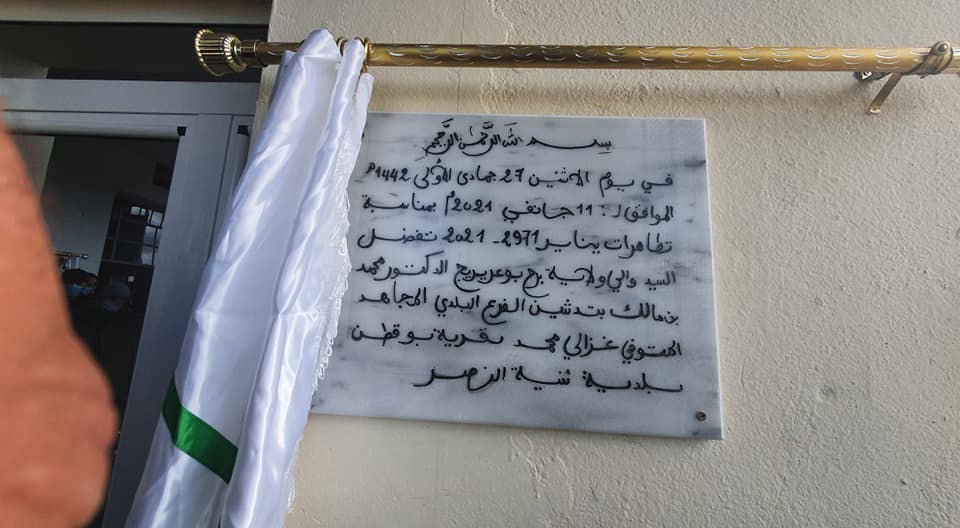 بسم الله الرحمن الرحيم
في يوم الاثنين 27 جمادى الأولى 1442هـ
الموافق لـ: 11 جانفي 2021م بمناسبة
تظاهرات يناير 2971 - 2021 تفضل
السيد والي ولاية برج بوعريريج الدكتور محمد
بن مالك بتدشين الفرع البلدي المجاهد
المتوفي غزالي محمد بقرية بوقطن
بلدية: ثنية النصر